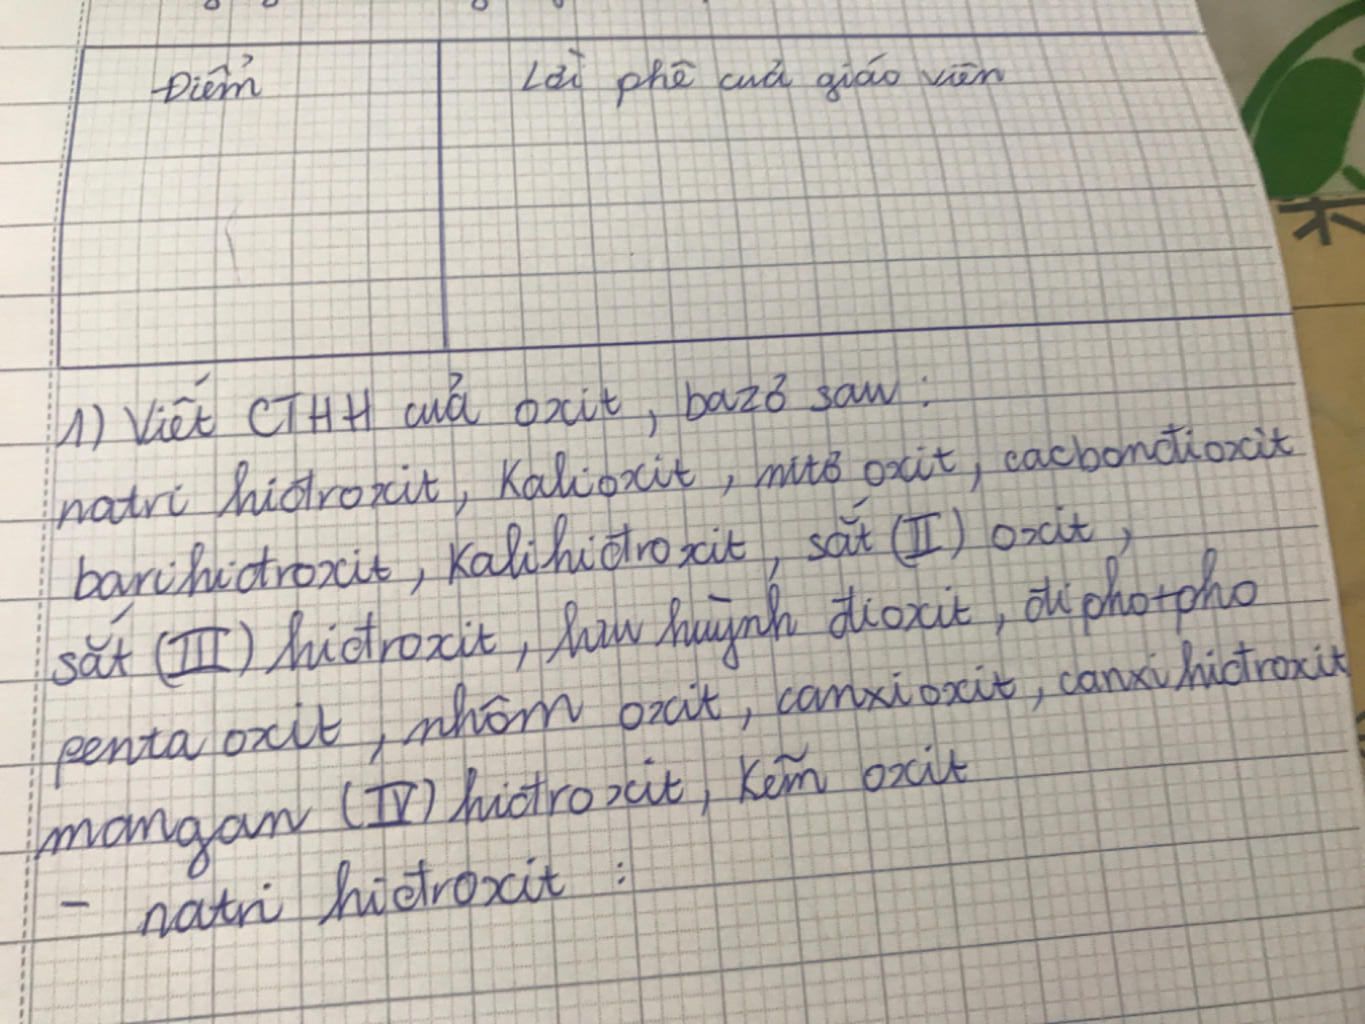 Điểm
Lời phê của giáo viên
1) Viết CTHH của oxit, bazơ sau:
natri hiđroxit, Kalioxit, nitơ oxit, cacbonđioxit
barihiđroxit, Kalihiđroxit, sắt (II) oxit,
sắt (III) hiđroxit, lưu huỳnh đioxit, điphotpho
penta oxit, nhôm oxit, canxioxit, canxihiđroxit
mangan (IV) hiđroxit, Kẽm oxit
- natri hiđroxit :